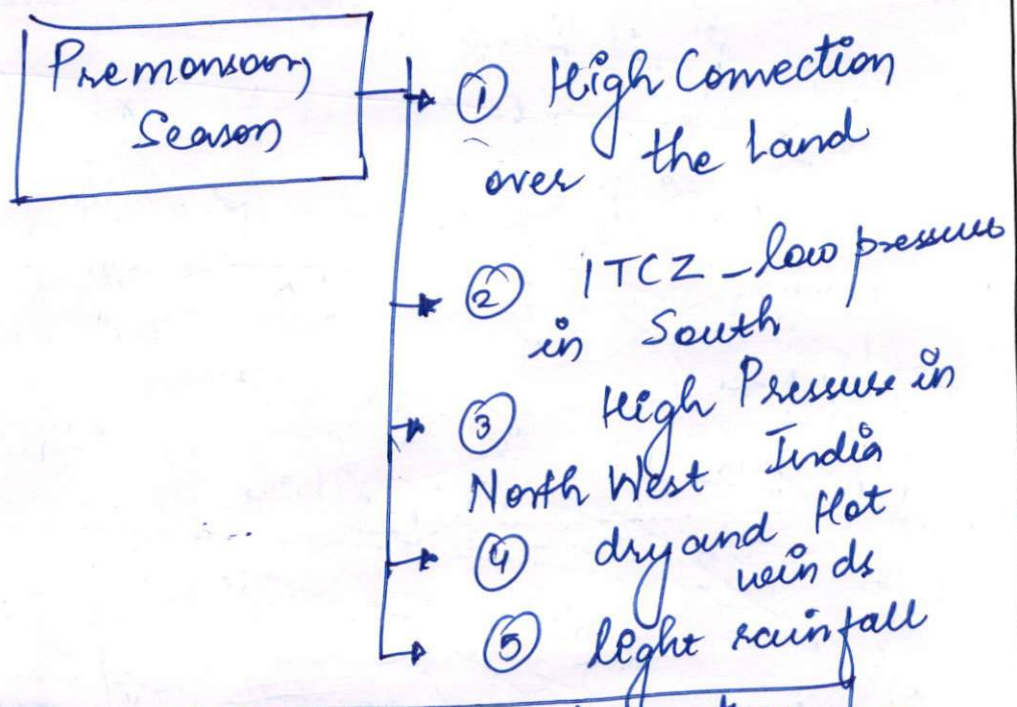 Premonsoon
Season
① High Convection
over the land
② ITCZ - low pressure
in South
③ High Pressure in
North West India
④ dry and Hot
winds
⑤ light rainfall